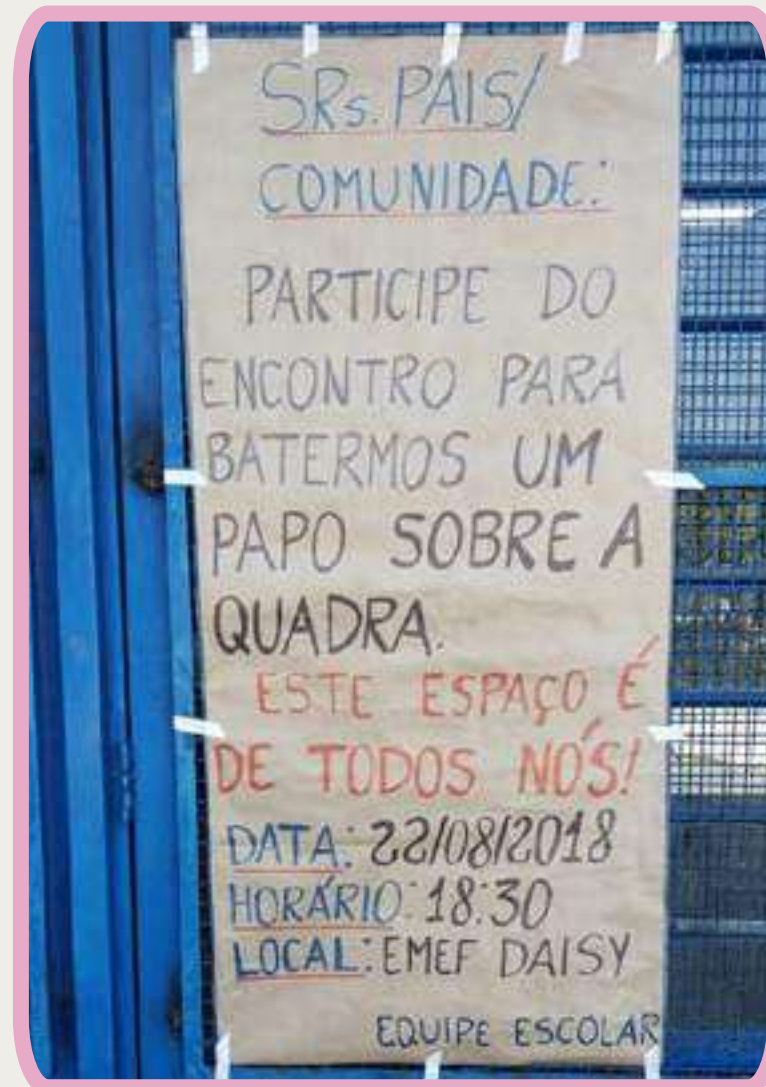 SRs. PAIS/
COMUNIDADE:
PARTICIPE DO
ENCONTRO PARA
BATERMOS UM
PAPO SOBRE A
QUADRA.
ESTE ESPAÇO É
DE TODOS NÓS!
DATA: 22/08/2018
HORÁRIO: 18:30
LOCAL: EMEF DAISY
EQUIPE ESCOLAR